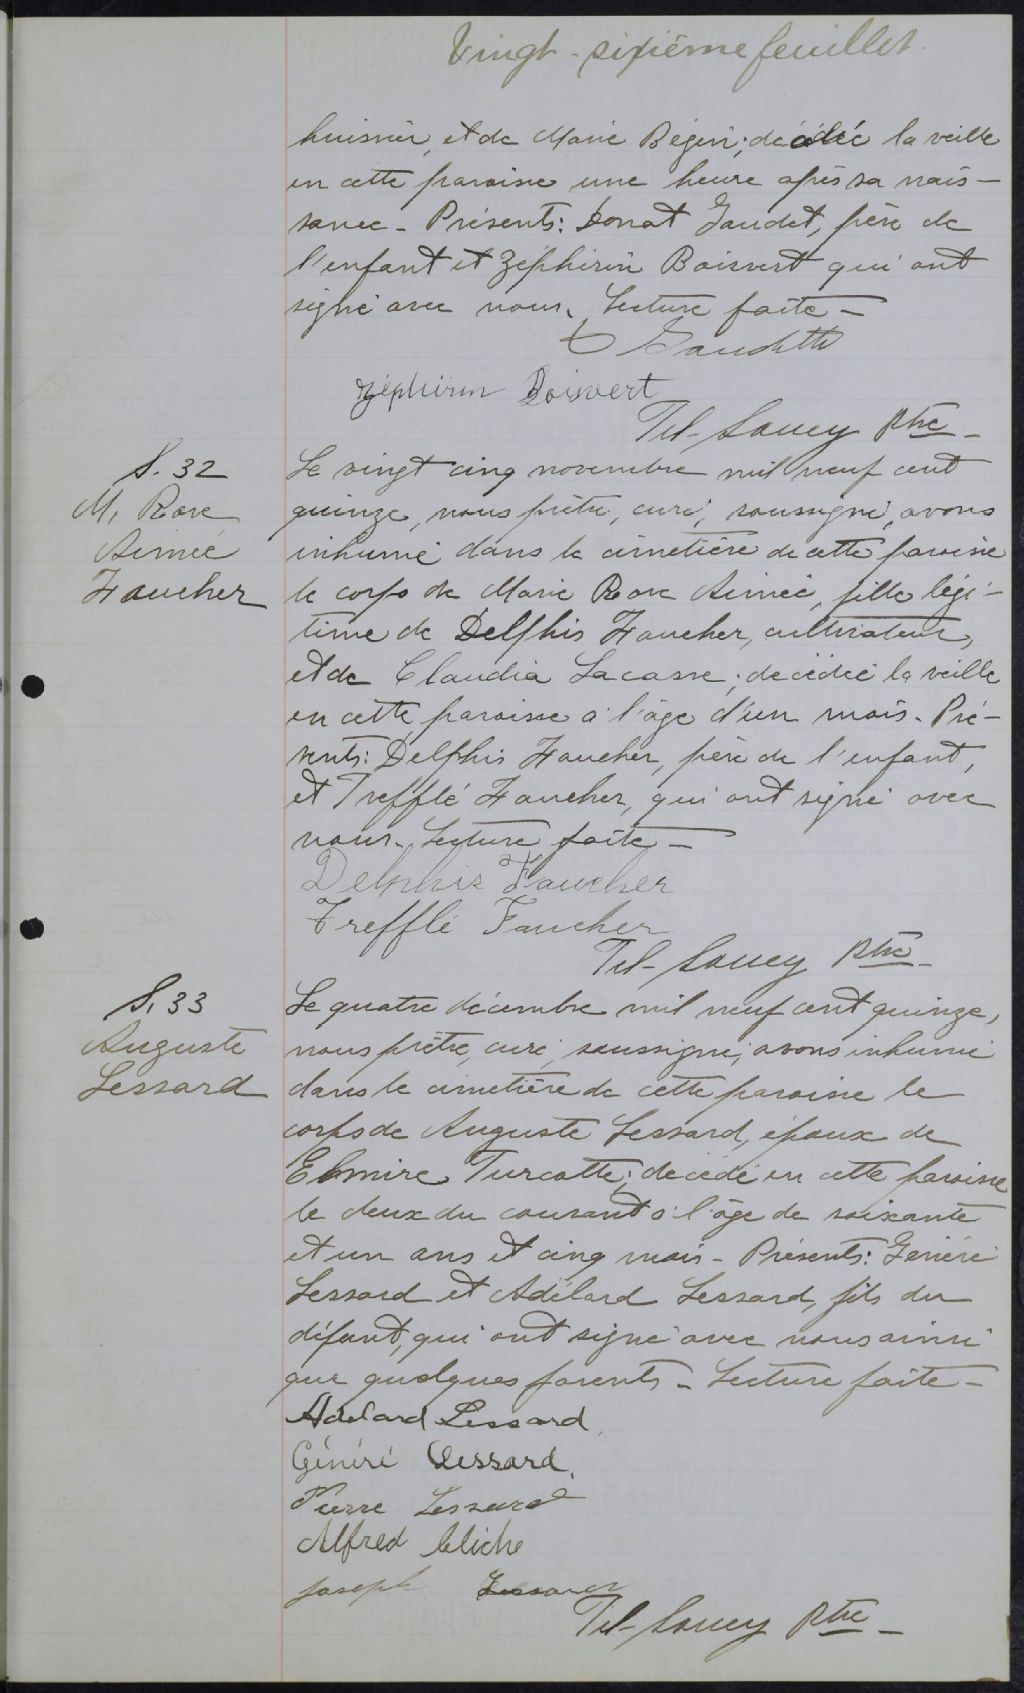 Vingt-sixième feuillet.
huissier, et de Marie Bégin; décédée la veille
en cette paroisse une heure après sa nais-
sance - Présents: Donat Gaudet, père de
l'enfant et Zéphirin Boisvert qui ont
signé avec nous. Lecture faite -
D Gaudette
Zéphirin Boisvert
Tél-Soucy Ptre -
S. 32
M. Rose
Aimée
Faucher
Le vingt cinq novembre mil neuf cent
quinze, nous prêtre, curé, soussigné, avons
inhumé dans le cimetière de cette paroisse
le corps de Marie Rose Aimée, fille légi-
time de Delphis Faucher, cultivateur,
et de Claudia Lacasse; décédée la veille
en cette paroisse à l'âge d'un mois. Pré-
sents: Delphis Faucher, père de l'enfant,
et Trefflé Faucher, qui ont signé avec
nous. Lecture faite -
Delphis Faucher
Trefflé Faucher
Tél-Soucy Ptre -
S. 33
Auguste
Lessard
Le quatre décembre mil neuf cent quinze,
nous prêtre, curé, soussigné, avons inhumé
dans le cimetière de cette paroisse le
corps de Auguste Lessard, époux de
Elmire Turcotte; décédé en cette paroisse
le deux du courant à l'âge de soixante
et un ans et cinq mois - Présents: Généré
Lessard et Adélard Lessard, fils du
défunt, qui ont signé avec nous ainsi
que quelques parents - Lecture faite -
Adelard Lessard
Généré Lessard
Pierre Lessard
Alfred Cliche
Joseph Lessard
Tél-Soucy Ptre -